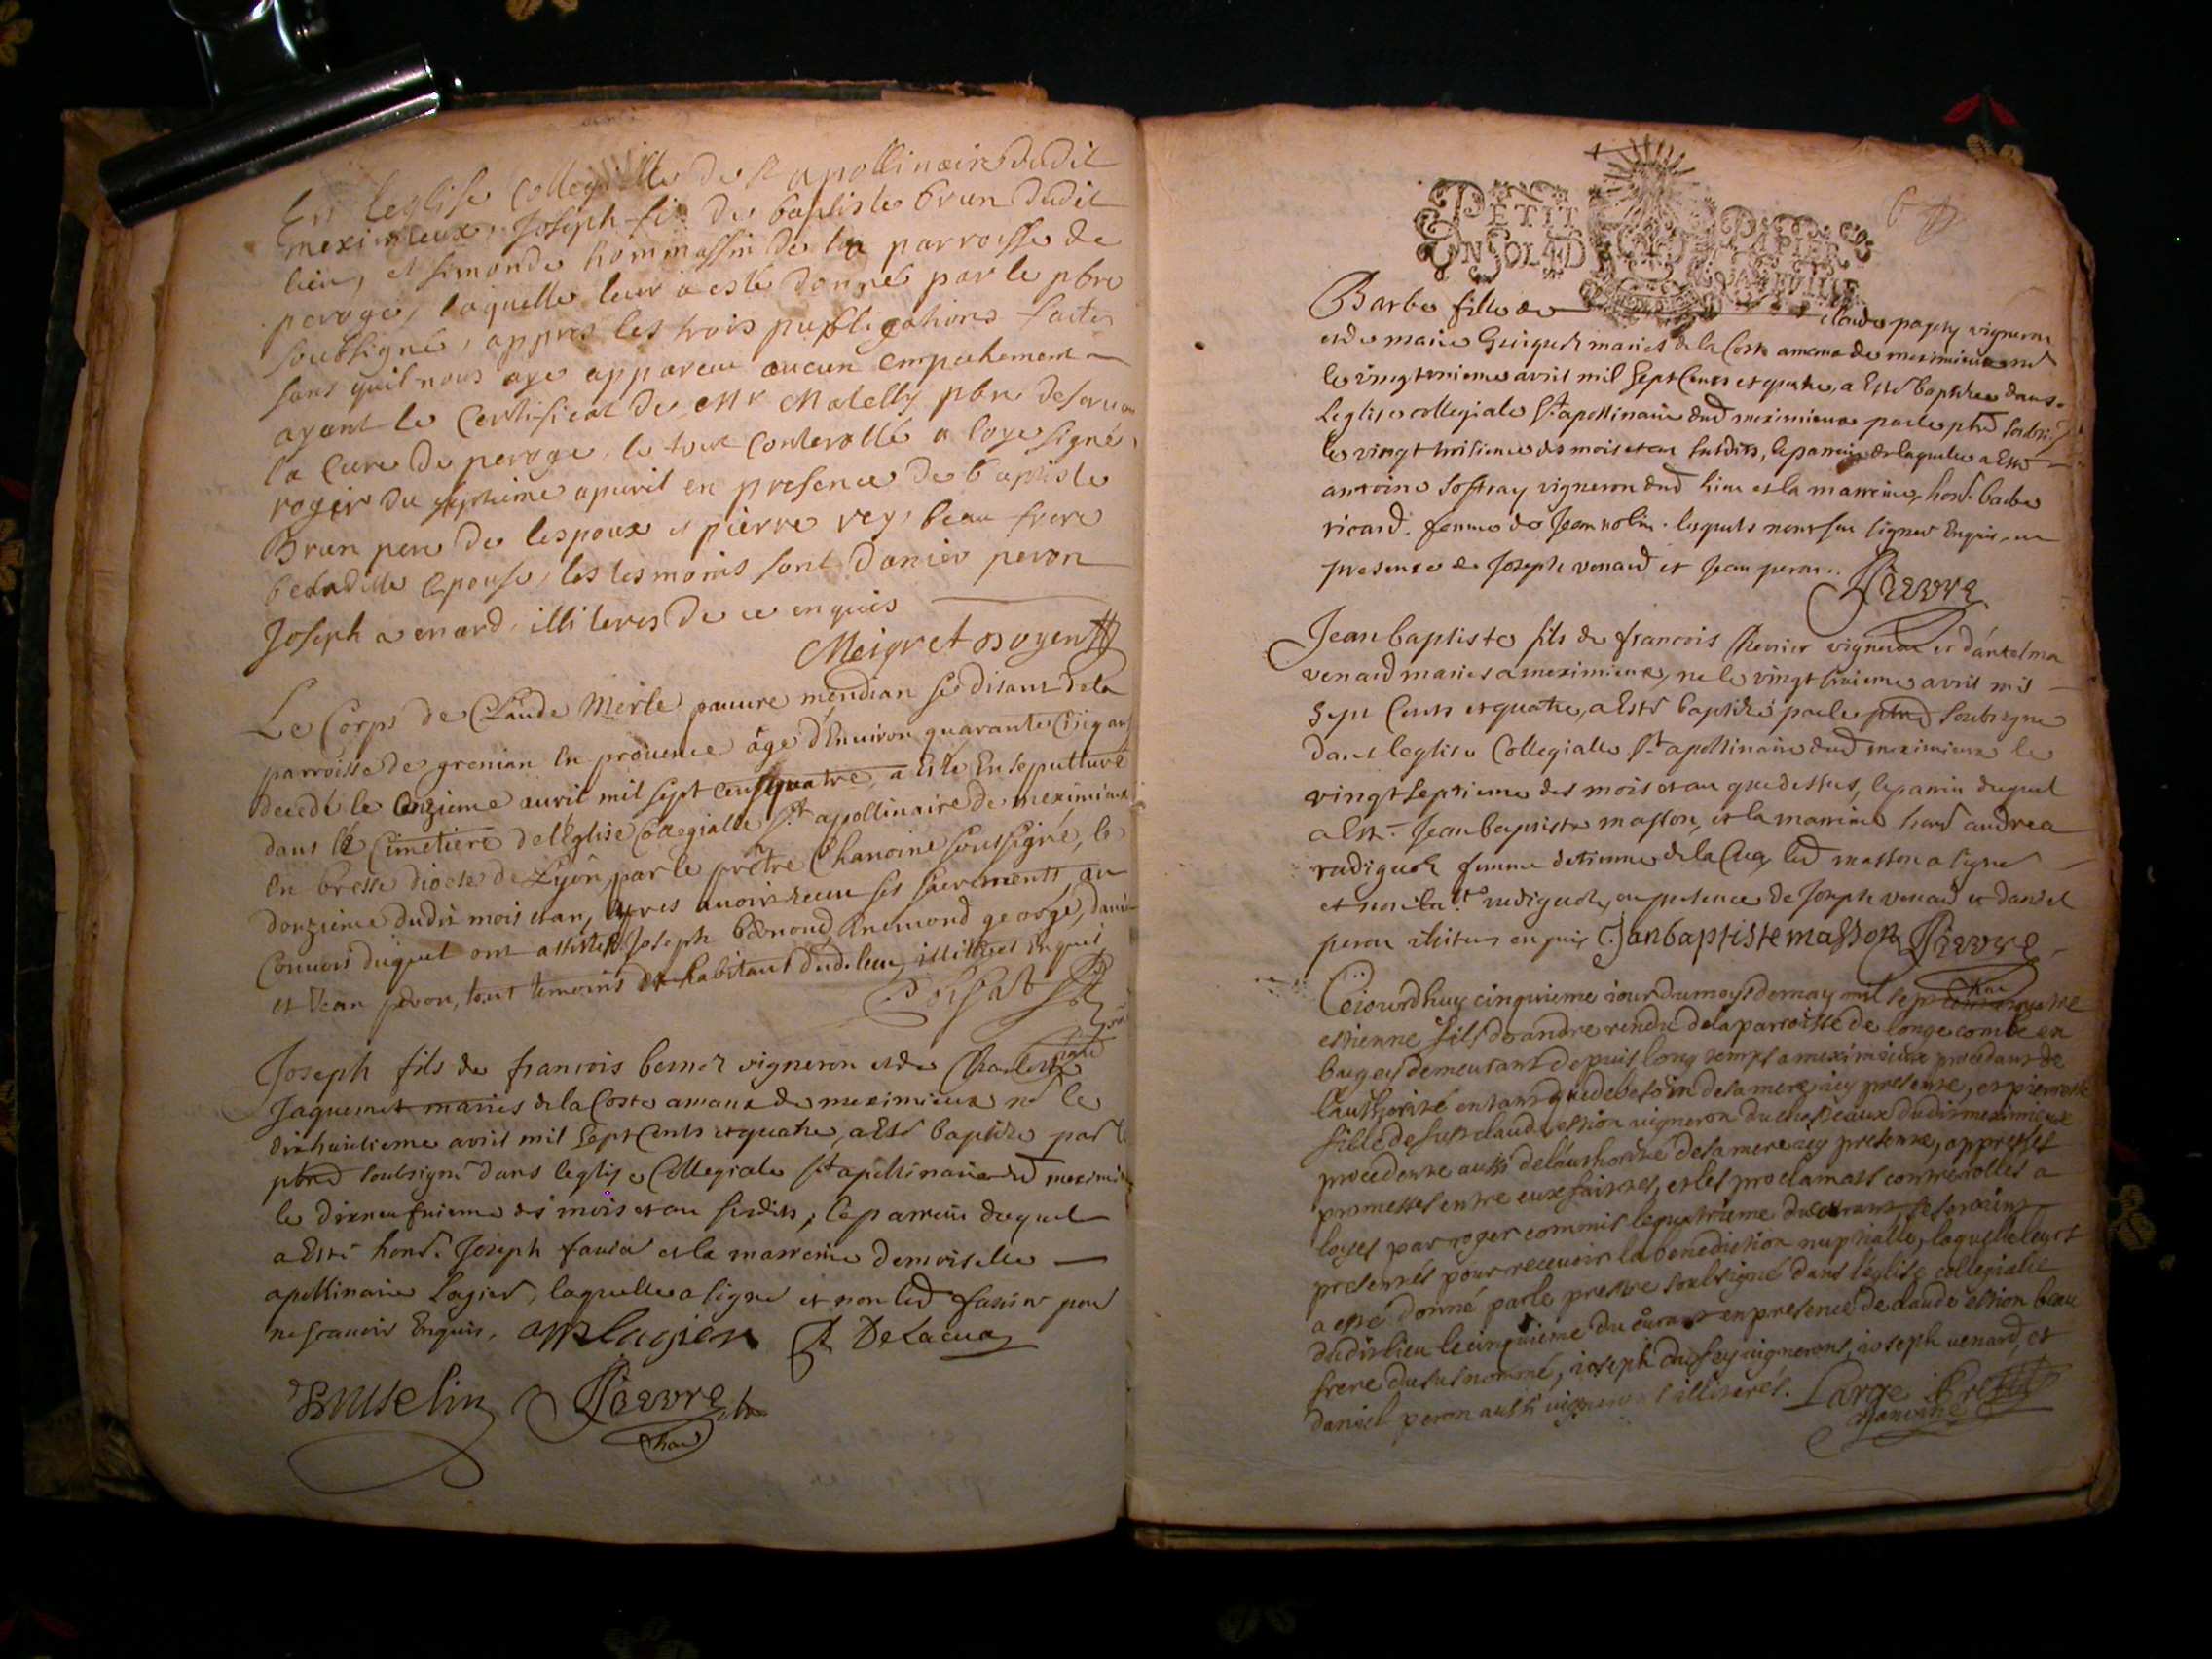 En leglise Collegialle de st apollinaire dudit
meximieux, Joseph fils de baptiste brun dudit
lieu, et simonde hommassin de la parroisse de
peroge, laquelle leur a esté donné par le pbre
soubsigné, appres les trois publications faites
sans quil nous aye apparru aucun empechement
ayant le Certificat de Mr Matelly pbre deserua
la Cure de peroge, le tout Conterollé a loye signé
roger du septieme apuril en presence de baptiste
Brun pere de lespoux et pierre rey beau frere
de ladille epouse, les tesmoins sont danier peron
Joseph venard, illiteres de ce enquis
Meigret doyen
Le Corps de Claude Merle pauure mendian se disant de la
parroisse de grenian En prouence âge d'Enuiron quarante Cinq ans
decedé le Onzieme auril mil sept cens quatre, a Esté Enseputturé
dans le Cimetiere de l'Eglise Collegialle St apollinaire de meximieux
En bresse diocese de Lyon, par le prêtre Chanoine soussigné, le
douzieme dudit mois et an, apres auoir receu ses sacrements, au
Conuois duquel ont assistés Joseph George, daniel
et Jean peron, tous temoins et habitant dud. lieu, illiteres Enquis
Joseph fils de francois vigneron et de
Jaquemet mariés de la Coste amane de meximieux né le
dixhuitieme avril mil sept Cents et quatre, a Esté baptize par le
pbrê soubsigné dans leglise Collegiale St apollinaire dud meximieux
le dixneufuieme des mois et an susdits, le parrein duquel
a Esté hons. Joseph fauier et la marreine demoiselle
apollinaire Lagier, laquelle a signé et non led fauier pour
ne scauoir Enquis. app lagier Delacua
Favvre
chan
6
PETIT PAPIER
UN SOL
Barbe fille de claude vigneron
et de marie mariés de la Coste amane de meximieux né
le vingt unieme avril mil sept Cents et quatre, a Esté baptizée dans
leglise collegiale St apollinaire dud meximieux par le pbrê soubsigné
le vingt troisieme des mois et an susdits, le parrein de laquelle a Esté
antoine soffray vigneron dud lieu et la marreine, hons. barbe
ricard. femme de Jean nolin. lesquels nont sceu signer Enquis, en
presence de Joseph venard et Jean peron. Favvre
Jean baptiste fils de francois vigneron et d'antelma
venard mariés a meximieux, né le vingt troisieme avril mil
sept Cents et quatre, a Esté baptizé par le pbrê soubsigné
dans leglise Collegialle St apollinaire dud meximieux le
vingt septieme des mois et an que dessus, le parrin duquel
a Esté Jean baptiste masson, et la marreine hons andrea
radiguet femme detienne de la Cua, led masson a signé
et non la d. radiguet, en presence de Joseph venard et daniel
peron illiteres enquis Janbaptistemasson Favvre
Cejourdhuy cinquieme iour du moys de may mil sept cens quatre
estienne fils de andre rendu de la parroisse de longecombe en
bugey demeurant depuis long temps a meximieux procedant de
l'authorité en tant que de besoin de sa mere icy presente, et pierrette
fille de fust claude estion vigneron du chasteaux dudit meximieux
procedente aussi de l'authorité de sa mere icy presente, appres les
promesses entre eux faittes, et les proclamats contrerolles a
loyes par roger commis le quatrieme du courant, se sont
presentés pour receuoir la benediction nuptialle, laquelle leur
a esté donné par le prestre soubsigné dans leglise collegialle
dudit lieu le cinquieme du courant en presence de claude estion beau
frere du susnommé, ioseph vignerons, ioseph uenard, et
daniel peron aussi uignerons illiterés. Large Prestre
chanoine